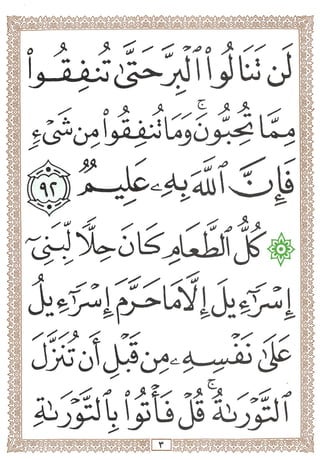 لَن تَنَالُوا۟ ٱلْبِرَّ حَتَّىٰ تُنفِقُوا۟
مِمَّا تُحِبُّونَ ۚ وَمَا تُنفِقُوا۟ مِن شَىْءٍ
فَإِنَّ ٱللَّهَ بِهِۦ عَلِيمٌ ٩٢
۞ كُلُّ ٱلطَّعَامِ كَانَ حِلًّا لِّبَنِىٓ
إِسْرَٰٓءِيلَ إِلَّا مَا حَرَّمَ إِسْرَٰٓءِيلُ
عَلَىٰ نَفْسِهِۦ مِن قَبْلِ أَن تُنَزَّلَ
ٱلتَّوْرَىٰةُ ۗ قُلْ فَأْتُوا۟ بِٱلتَّوْرَىٰةِ
٣